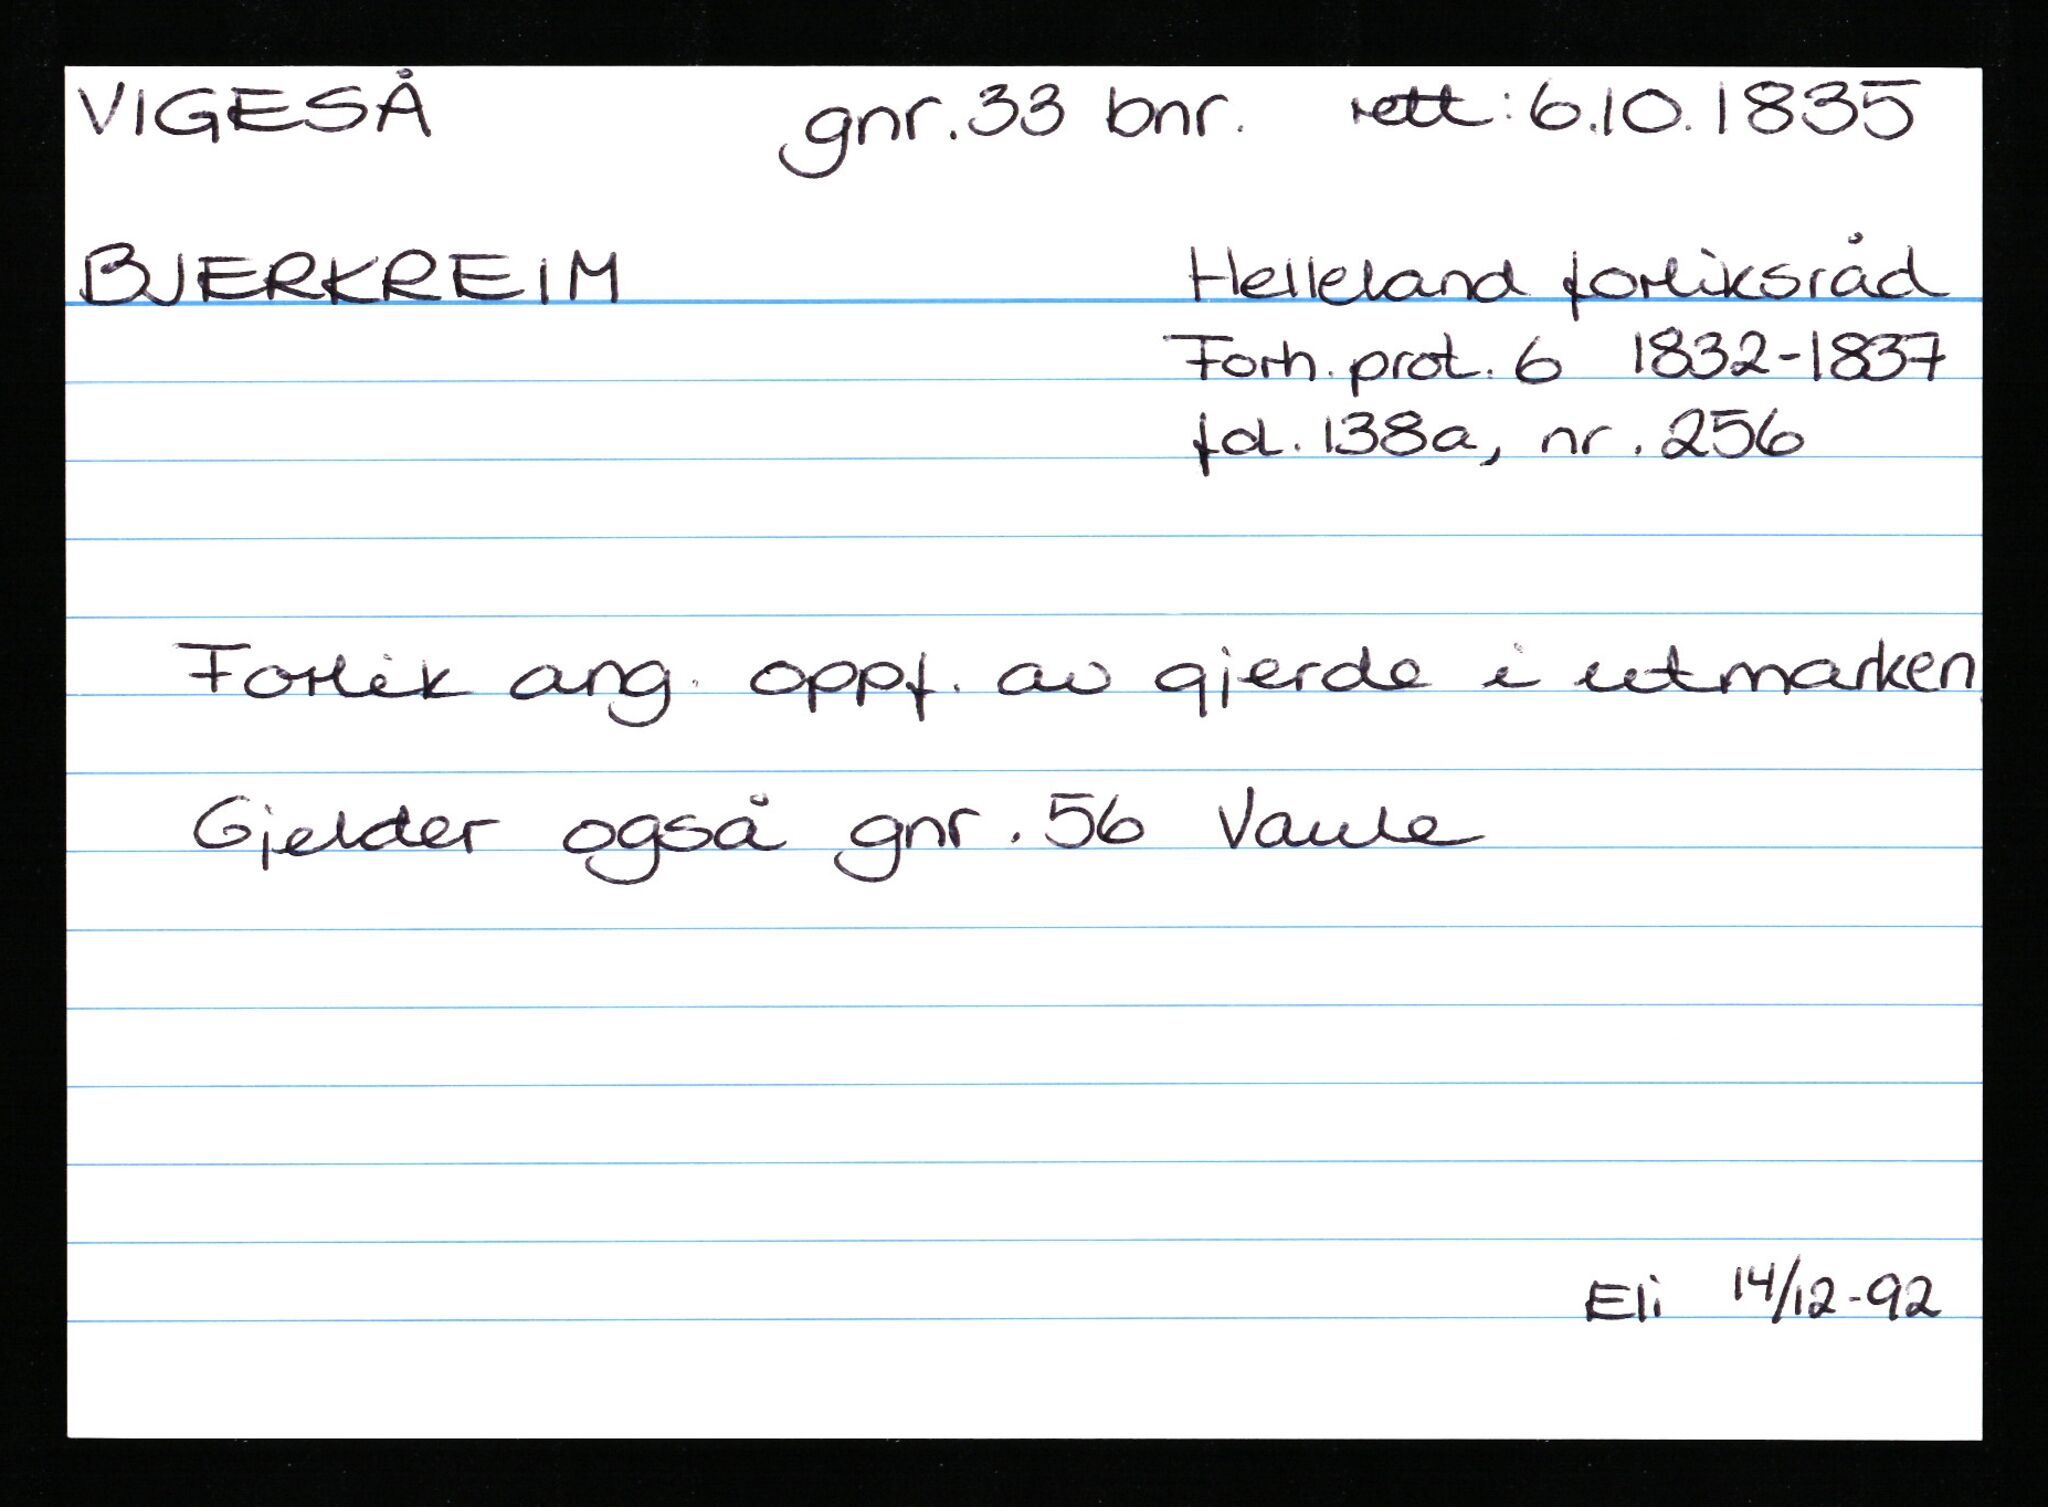 VIGESÅ gnr. 33 bnr. rett: 6.10.1835
BJERKREIM Helleland forliksråd
Forh. prot. 6 1832-1837
fol. 138a, nr. 256
Forlik ang. oppf. av gjerde i utmarken.
Gjelder også gnr. 56 Vaule
Eli 14/12-92